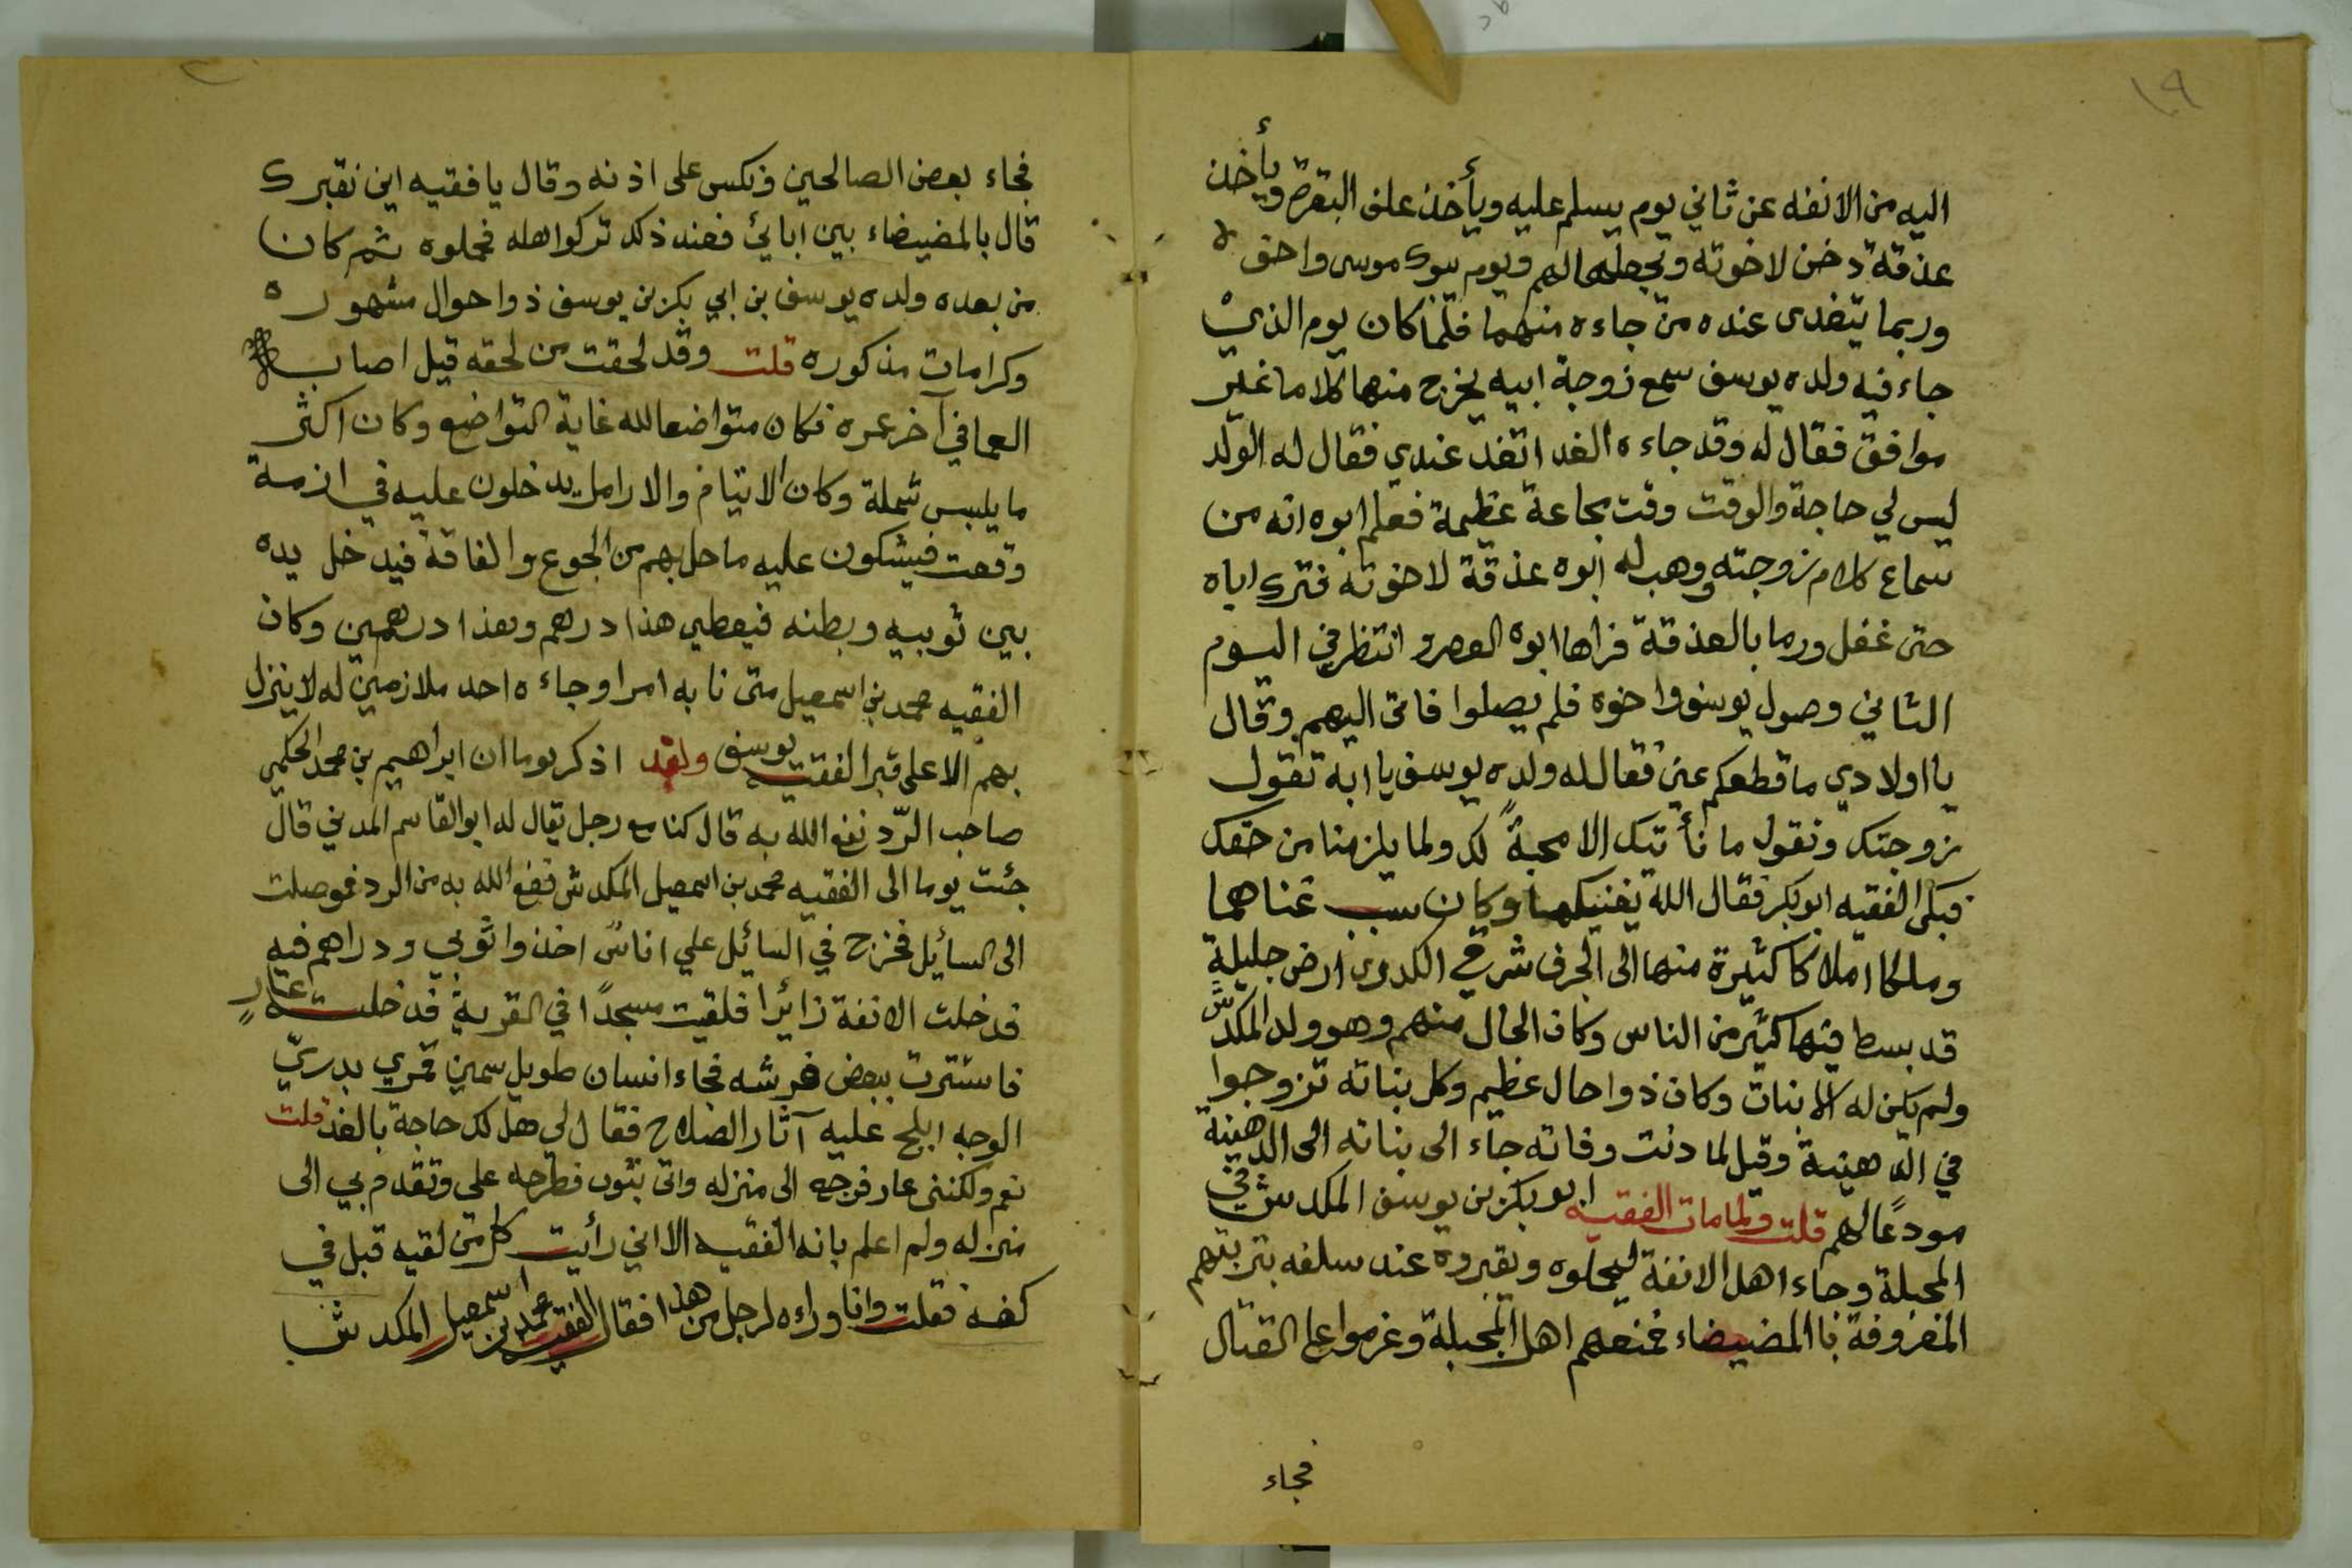 ١٩
اليه من الانفه عن ثاني يوم يسلم عليه ويأخذ علف البقرة ويأخذ
عذقة دخن لاخوته ويجعلها لهم ويوم يبوك موسى واخوه
وربما يتغدى عنده من جاءه منهما فلما كان يوم الذي
جاء فيه ولده يوسف سمع زوجة ابيه يخرج منها كلاما غير
موافق فقال له وقد جاءه الغدا تغد عندي فقال له الولد
ليس لي حاجة والوقت وقت مجاعة عظيمة فعلم ابوه انه من
سماع كلام زوجته ووهب له ابوه عذقة لاخوته فترك اباه
حتى غفل ورما بالعذقة فراها ابوه العصر وانتظر في اليوم
الثاني وصول يوسف واخوه فلم يصلوا فاتى اليهم وقال
يا اولادي ما قطعكم عني فقال له ولده يوسف يا ابه تقول
زوجتك ونقول ما نأتتك الا محبةً لك ولما يلزمنا من حقك
فبكى الفقيه ابو بكر فقال الله يغنيكما وكان سبب غناهما
وملكا املاكا كثيرة منها الى الجرف شرقي الكدرى ارض جليلة
قد بسط فيها كثير من الناس وكان الحال منهم وهو ولد المكدش
ولم يكن له الا بنات وكان ذوا حال عظيم وكل بناته تزوجوا
في الدهنية وقيل لما دنت وفاته جاء الى بناته الى الدهنية
مودعًا لهم قلت ولما مات الفقيه ابو بكر بن يوسف المكدش في
المحبلة وجاء اهل الانفة ليحملوه ويقبروه عند سلفه بتربتهم
المعروفة باالمضيضاء فمنعهم اهل المحبلة وعزموا على القتال
فجاء
فجاء بعض الصالحين ونكس على اذنه وقال يا فقيه اين نقبرك
قال بالمضيضاء بين ابائي فعند ذلك تركوا اهله فحملوه ثم كان
من بعده ولده يوسف بن ابي بكر بن يوسف ذوا حوال مشهوره
وكرامات مذكوره قلت وقد لحقت من لحقه قيل اصاب
العما في آخر عمره فكان متواضعا لله غاية التواضع وكان اكثر
ما يلبس شملة وكان الايتام والارامل يدخلون عليه في ازمة
وقعت فيشكون عليه ما حل بهم من الجوع والفاقة فيدخل يده
بين ثوبيه وبطنه فيعطي هذا درهم وهذا درهمين وكان
الفقيه محمد بن اسمعيل متى نابه امر اوجاءه احد ملازمين له لا ينزل
بهم الا على قبر الفقيه يوسف ولقد اذكر يوما ان ابراهيم بن محمد الحكمي
صاحب الرّد نفع الله به قال كنا مع رجل يقال له ابو القاسم المدني قال
جئت يوما الى الفقيه محمد بن اسمعيل المكدش نفع الله به من الرد فوصلت
الى السائل فخرج في السائل علي اناسٌ اخذوا ثوبي ودراهم فيه
فدخلت الانفة زائرا فلقيت مسجدًا في القرية فدخلت عارٍ
فاستترت ببعض فرشه فجاء انسان طويل سمين قمري بدريّ
الوجه ابلج عليه آثار الصلاح فقال لي هل لك حاجة بالغد قلت
نعم ولكنني عار فوجه الى منزله واتى بثوب فطرحه علي وتقدم بي الى
منزله ولم اعلم بانه الفقيه الا اني رأيت كل من لقيه قبل في
كفه فقلت وانا وراءه لرجل من هذا فقال الفقيه محمد بن اسمعيل المكدش